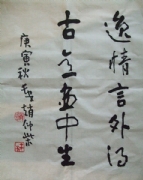 逸情言外得
古意画中生
庚寅秋